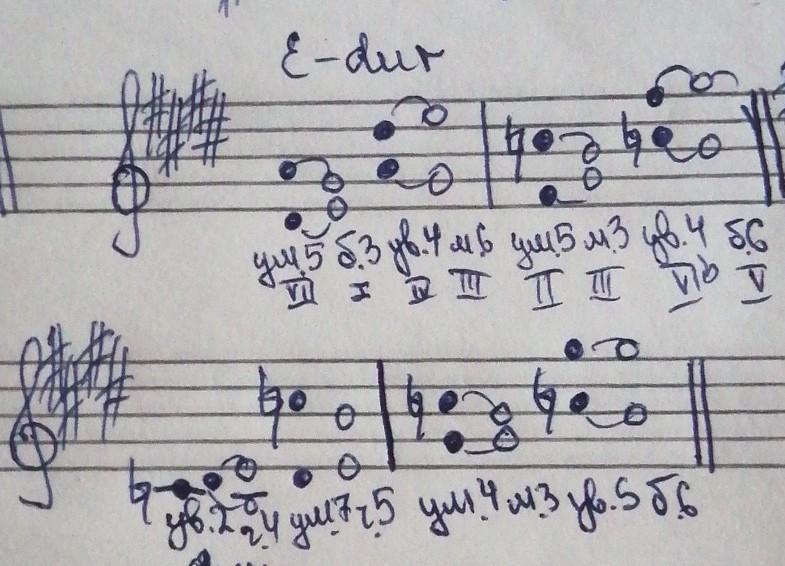 E-dur
ум.5 б.3 ув.4 м.6 ум.5 м.3 ув.4 б.6
VII I IV III II III VIb V
ув.2 ч.4 ум.7 ч.5 ум.4 м.3 ув.5 б.6